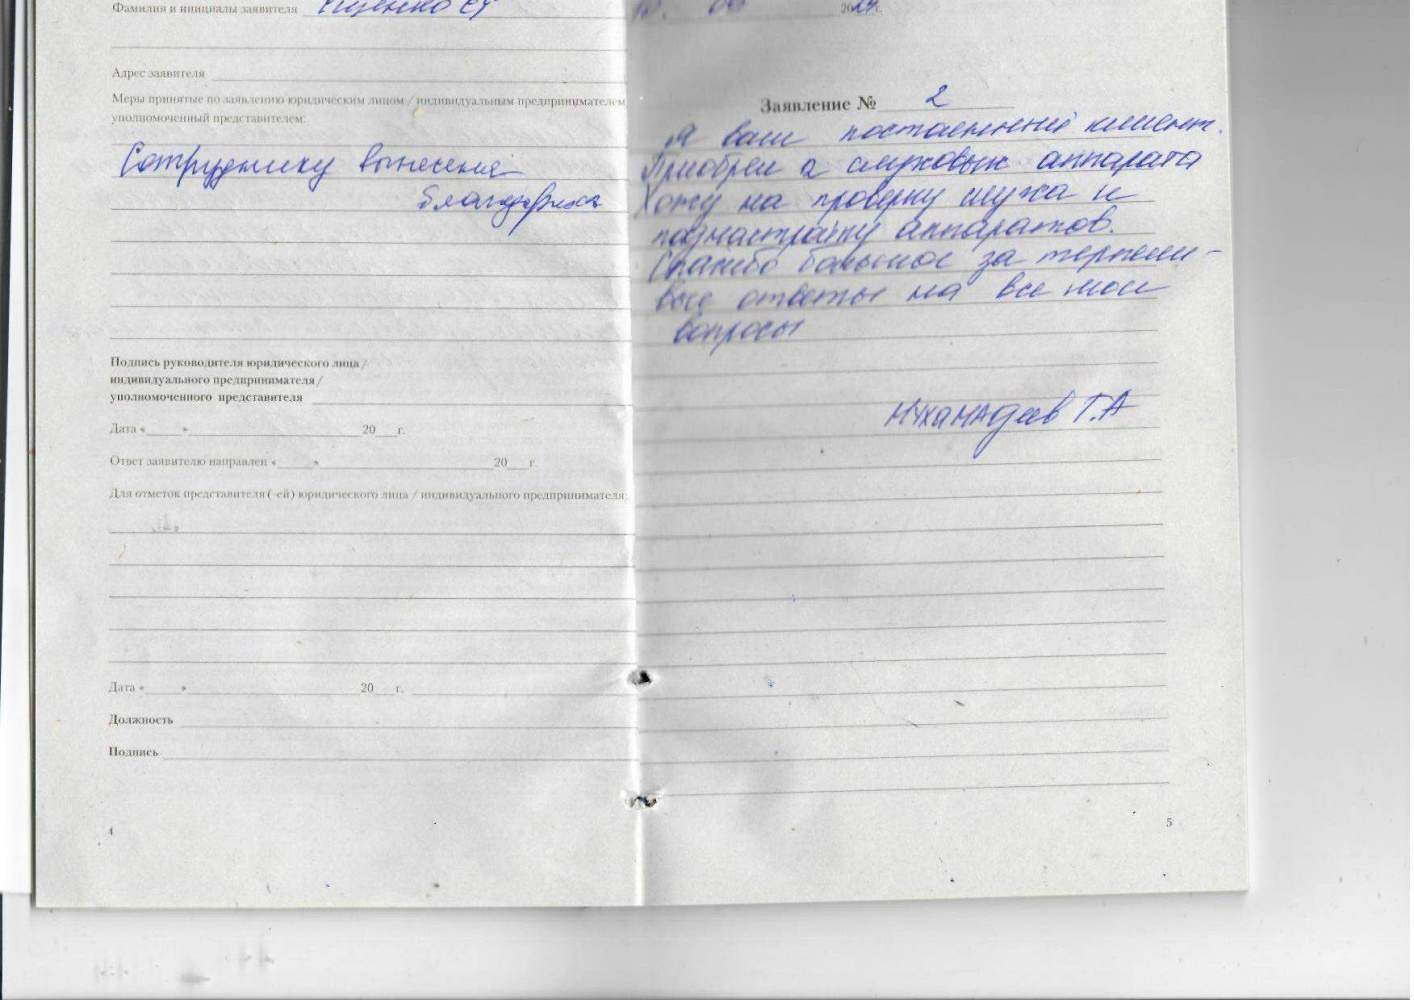 Фамилия и инициалы заявителя
Адрес заявителя
Меры принятые по заявлению юридическим лицом / индивидуальным предпринимателем
уполномоченный представителем:
Сотруднику вынесена
благодарность
Подпись руководителя юридического лица /
индивидуального предпринимателя /
уполномоченного представителя
Дата « » 20 г.
Ответ заявителю направлен « » 20 г.
Для отметок представителя (-ей) юридического лица / индивидуального предпринимателя:
Дата « » 20 г.
Должность
Подпись
4
Заявление № 2
Я ваш постоянный клиент.
Приобрел 2 слуховых аппарата
Хожу на проверку слуха и
поднастройку аппаратов.
Спасибо большое за терпели-
вые ответы на все мои
вопросы
Т.А
5